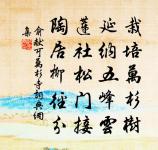 栽培萬杉樹
延納五峰雲
蓮社松門接
陶居柳徑分
俞献可萬杉寺詞典網
集